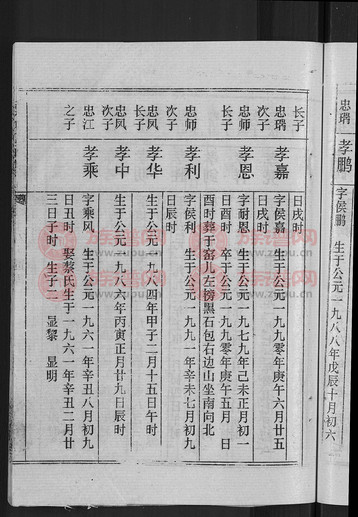 忠琇
孝鹏
字侯鹏 生于公元一九八八年戊辰十月初六
日戌时
长子
忠琇
孝嘉
字侯嘉 生于公元一九九〇年庚午六月廿五
次子
日戌时
忠师
孝恩
字耐恩 生于公元一九七九年己未正月初一
长子
日酉时 卒于公元一九九〇年庚午五月 日
酉时葬于窑儿左榜黑石包右边山坐南向北
忠师
孝利
字侯利 生于公元一九九一年辛未七月初九
次子
日辰时
忠凤
孝华
生于公元一九八四年甲子二月十五日午时
长子
忠凤
孝中
生于公元一九八六年丙寅正月廿九日辰时
次子
忠江
孝乘
字乘风 生于公元一九六一年辛丑八月初九
之子
日丑时 娶黎氏生于一九六一年辛丑二月廿
三日子时 生子二 显黎 显明
族谱网
www.zupu.cn